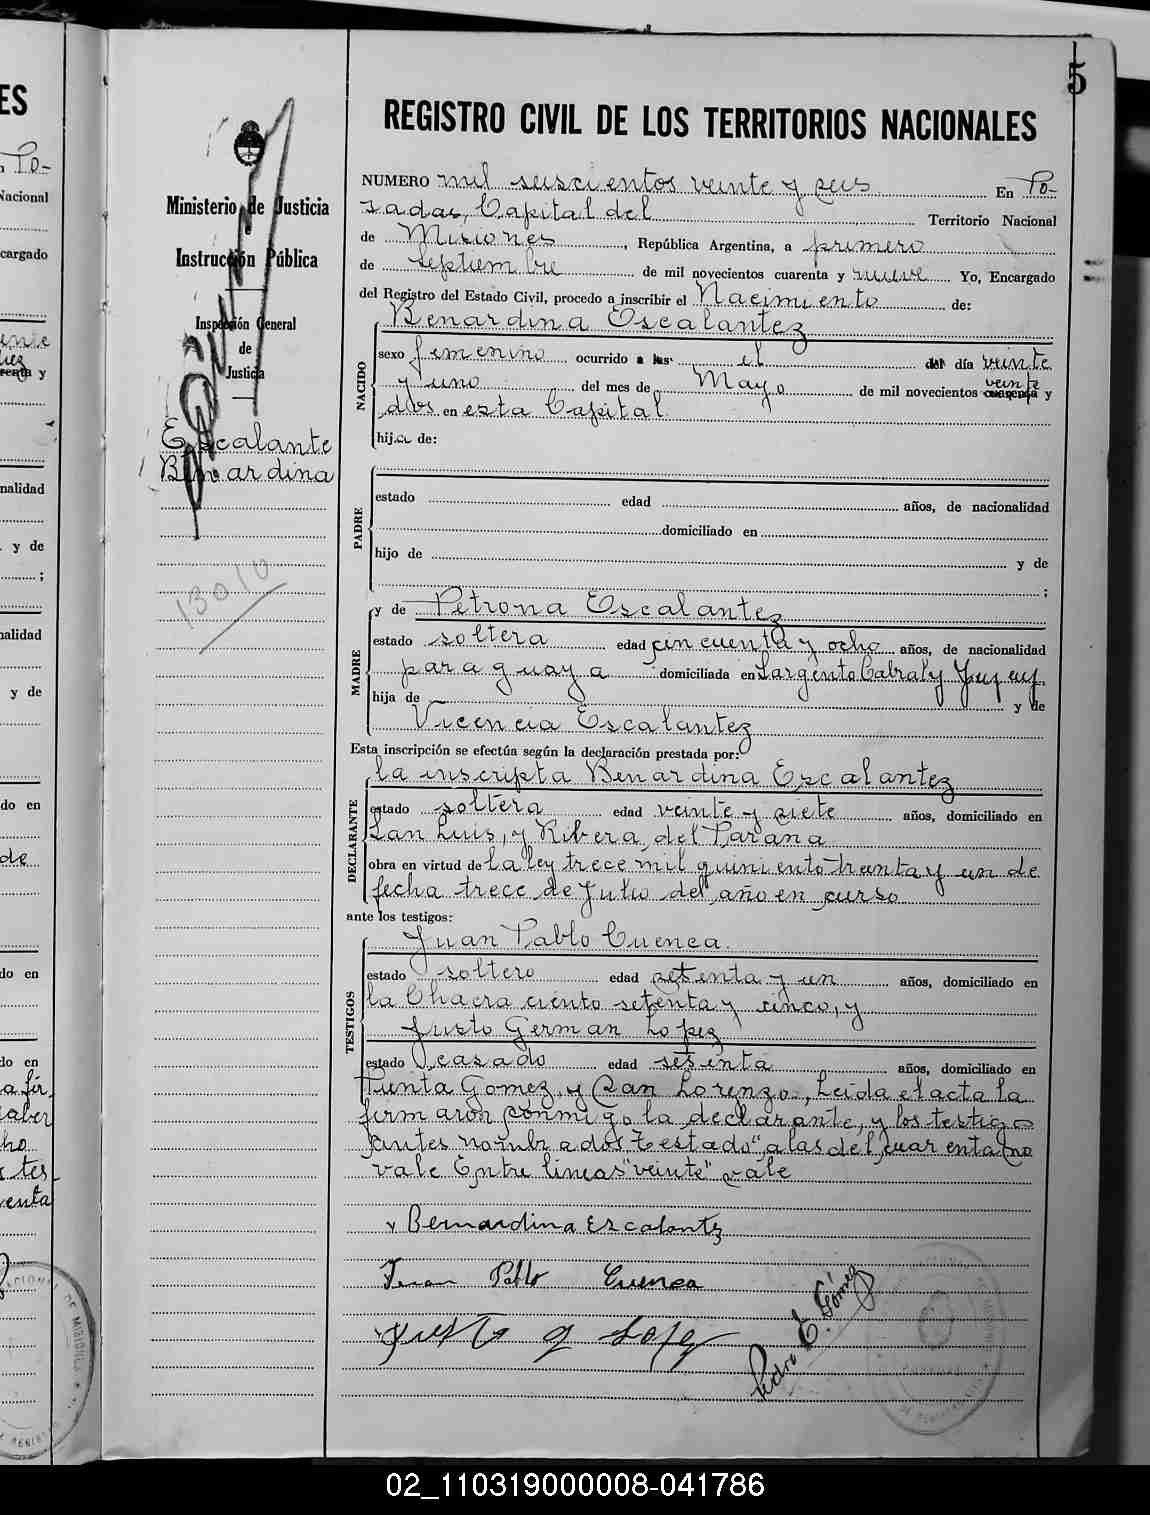 5
REGISTRO CIVIL DE LOS TERRITORIOS NACIONALES
Ministerio de Justicia
Instrucción Pública
Inspección General
de
Justicia
Escalante
Benardina
13010
NUMERO mil seiscientos veinte y seis En Po-
sadas, Capital del Territorio Nacional
de Misiones, República Argentina, a primero
de septiembre de mil novecientos cuarenta y nueve Yo, Encargado
del Registro del Estado Civil, procedo a inscribir el Nacimiento de:
Benardina Escalantez
NACIDO
sexo femenino ocurrido a las el del día veinte
y uno del mes de Mayo de mil novecientos cuarenta veinte y
dos en esta Capital
hija de:
PADRE
estado edad años, de nacionalidad
domiciliado en
hijo de y de
;
MADRE
y de Petrona Escalantez
estado soltera edad cincuenta y ocho años, de nacionalidad
paraguaya domiciliada en Sargento Cabral y Jujuy
hija de y de
Vicencia Escalantez
Esta inscripción se efectúa según la declaración prestada por:
DECLARANTE
la inscripta Benardina Escalantez
estado soltera edad veinte y siete años, domiciliado en
San Luis, y Ribera del Parana
obra en virtud de la ley trece mil quiniento treinta y un de
fecha trece de Julio del año en curso
ante los testigos:
TESTIGOS
Juan Pablo Cuenca.
estado soltero edad setenta y un años, domiciliado en
la Chacra ciento setenta y cinco, y
Justo German Lopez
estado casado edad sesenta años, domiciliado en
Punta Gomez y San Lorenzo, Leida el acta la
firmaron conmigo la declarante, y los testigo
antes nombrados. Testado "a las del cuarenta" no
vale Entre lineas "veinte" vale
Bernardina Escalantz
Juan Pablo Cuenca
Justo G Lopez
Pedro E. Gómez
02_110319000008-041786